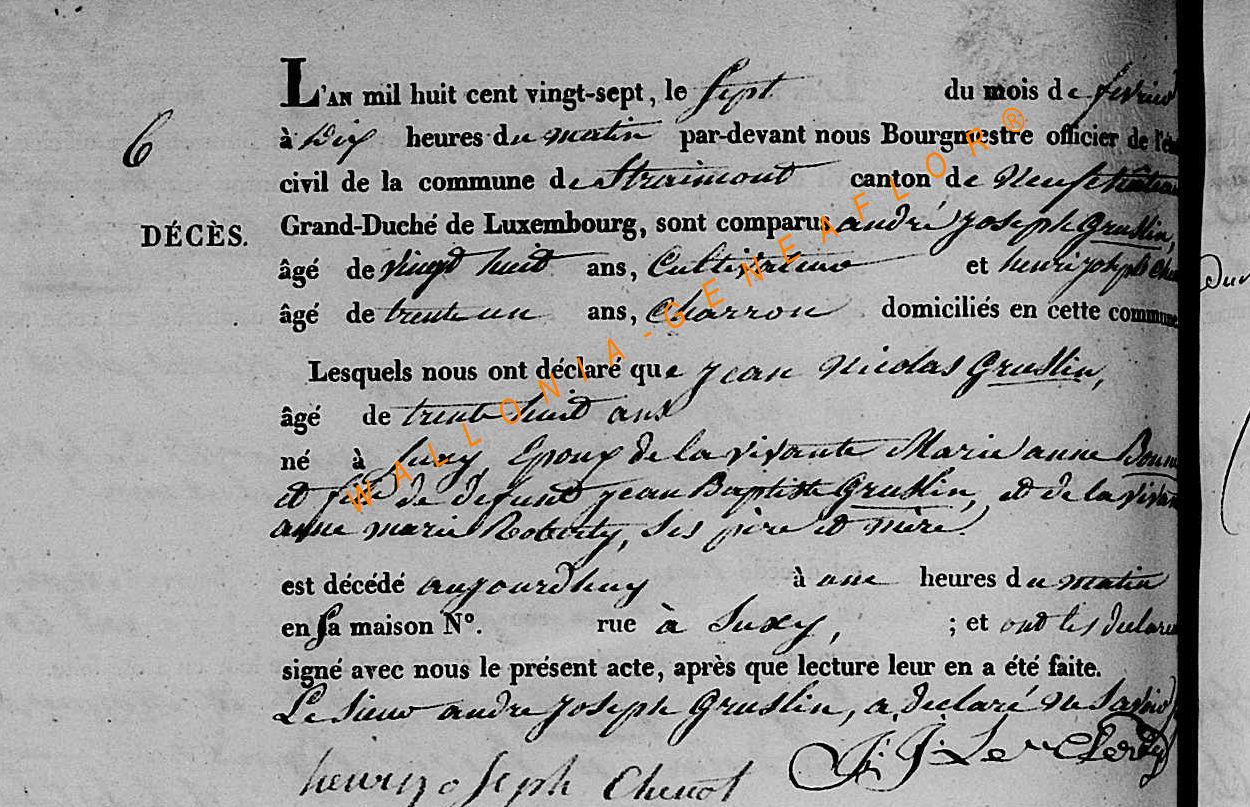 L'AN mil huit cent vingt-sept, le Sept du mois de fevrier
6
à Dix heures du matin par-devant nous Bourgmestre officier de l'état
civil de la commune de Straimont canton de Neufchateau
DÉCÈS.
Grand-Duché de Luxembourg, sont comparus andré joseph Gruslin,
âgé de vingt huit ans, Cultivateur et henri joseph Che
âgé de trente un ans, Charron domiciliés en cette commune
Lesquels nous ont déclaré que jean Nicolas Gruslin,
âgé de trente huit ans
né à Suxy, Epoux de la vivante Marie anne
et fils de defunt jean Baptiste Gruslin, et de la vivan
anne marie Roberty, ses père et mère.
est décédé aujourdhuy à une heures du matin
en sa maison N°. rue à Suxy, ; et ont les declara
signé avec nous le présent acte, après que lecture leur en a été faite.
Le Sieur andre joseph Gruslin, a declaré ne Savoir
henry joseph Chenot
WALLONIA-GENEAFLOR®